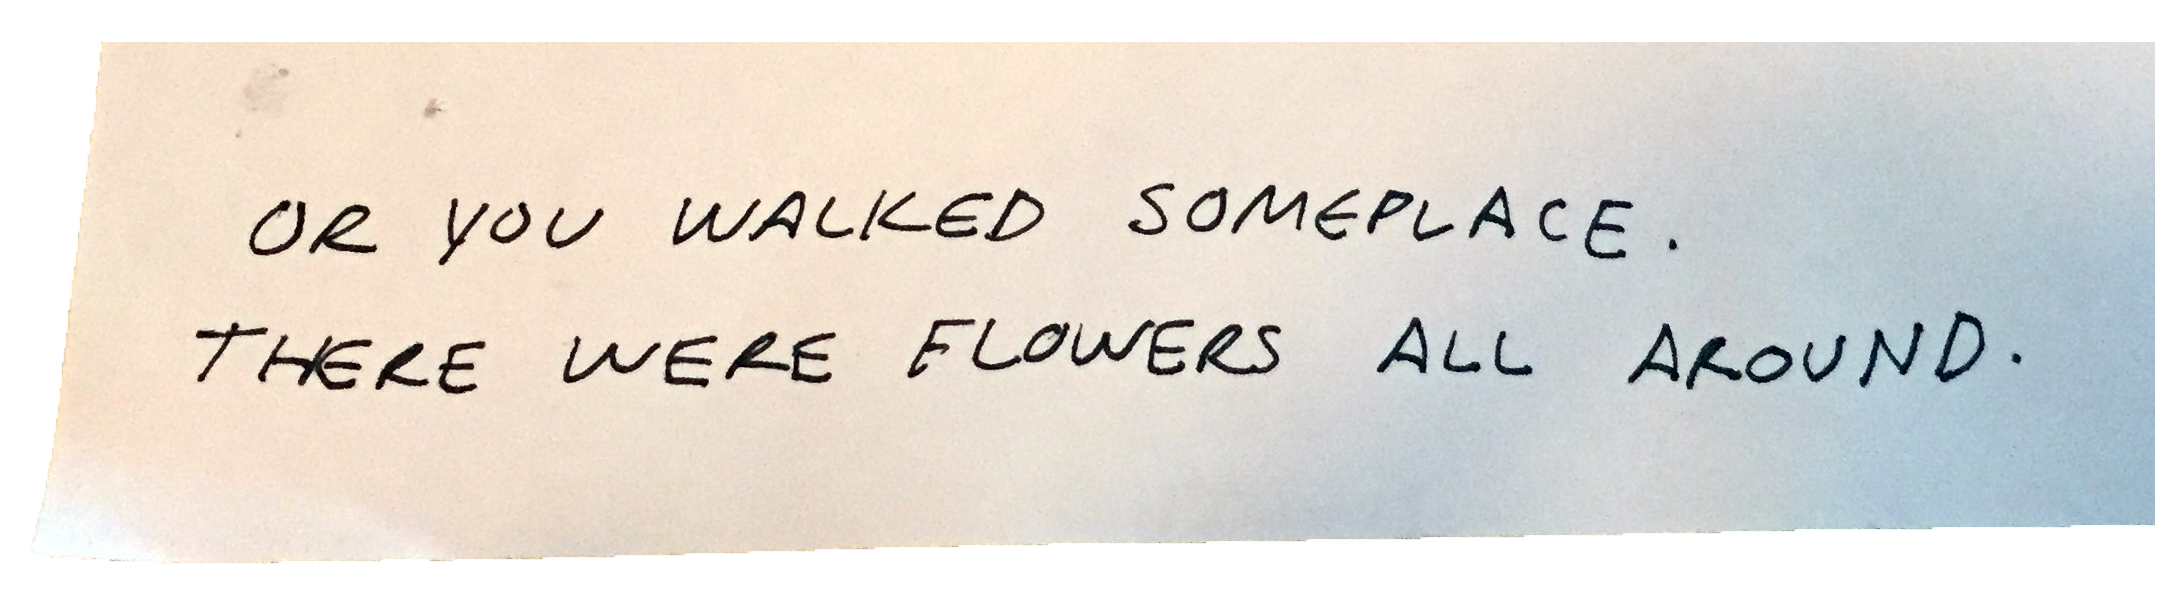 OR YOU WALKED SOMEPLACE.
THERE WERE FLOWERS ALL AROUND.